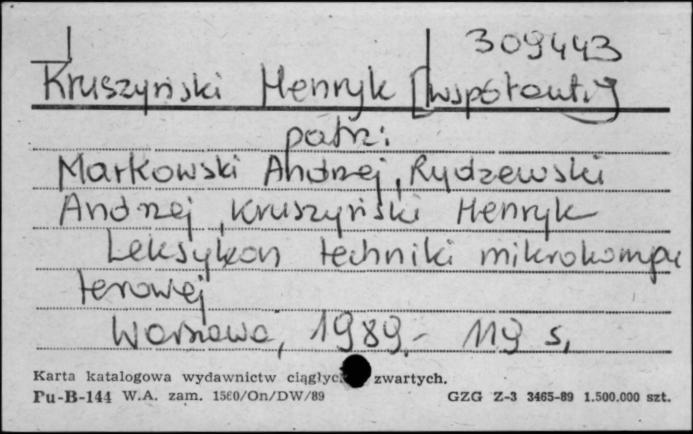 309443
Kruszyński Henryk [współaut.]
patrz:
Markowski Andrzej, Rydzewski
Andrzej, Kruszyński Henryk
Leksykon techniki mikrokompu
terowej
Warszawa, 1989.- 119 s.
Karta katalogowa wydawnictw ciągłyc zwartych.
Pu-B-144 W.A. zam. 1560/On/DW/89 GZG Z-3 3465-89 1.500.000 szt.